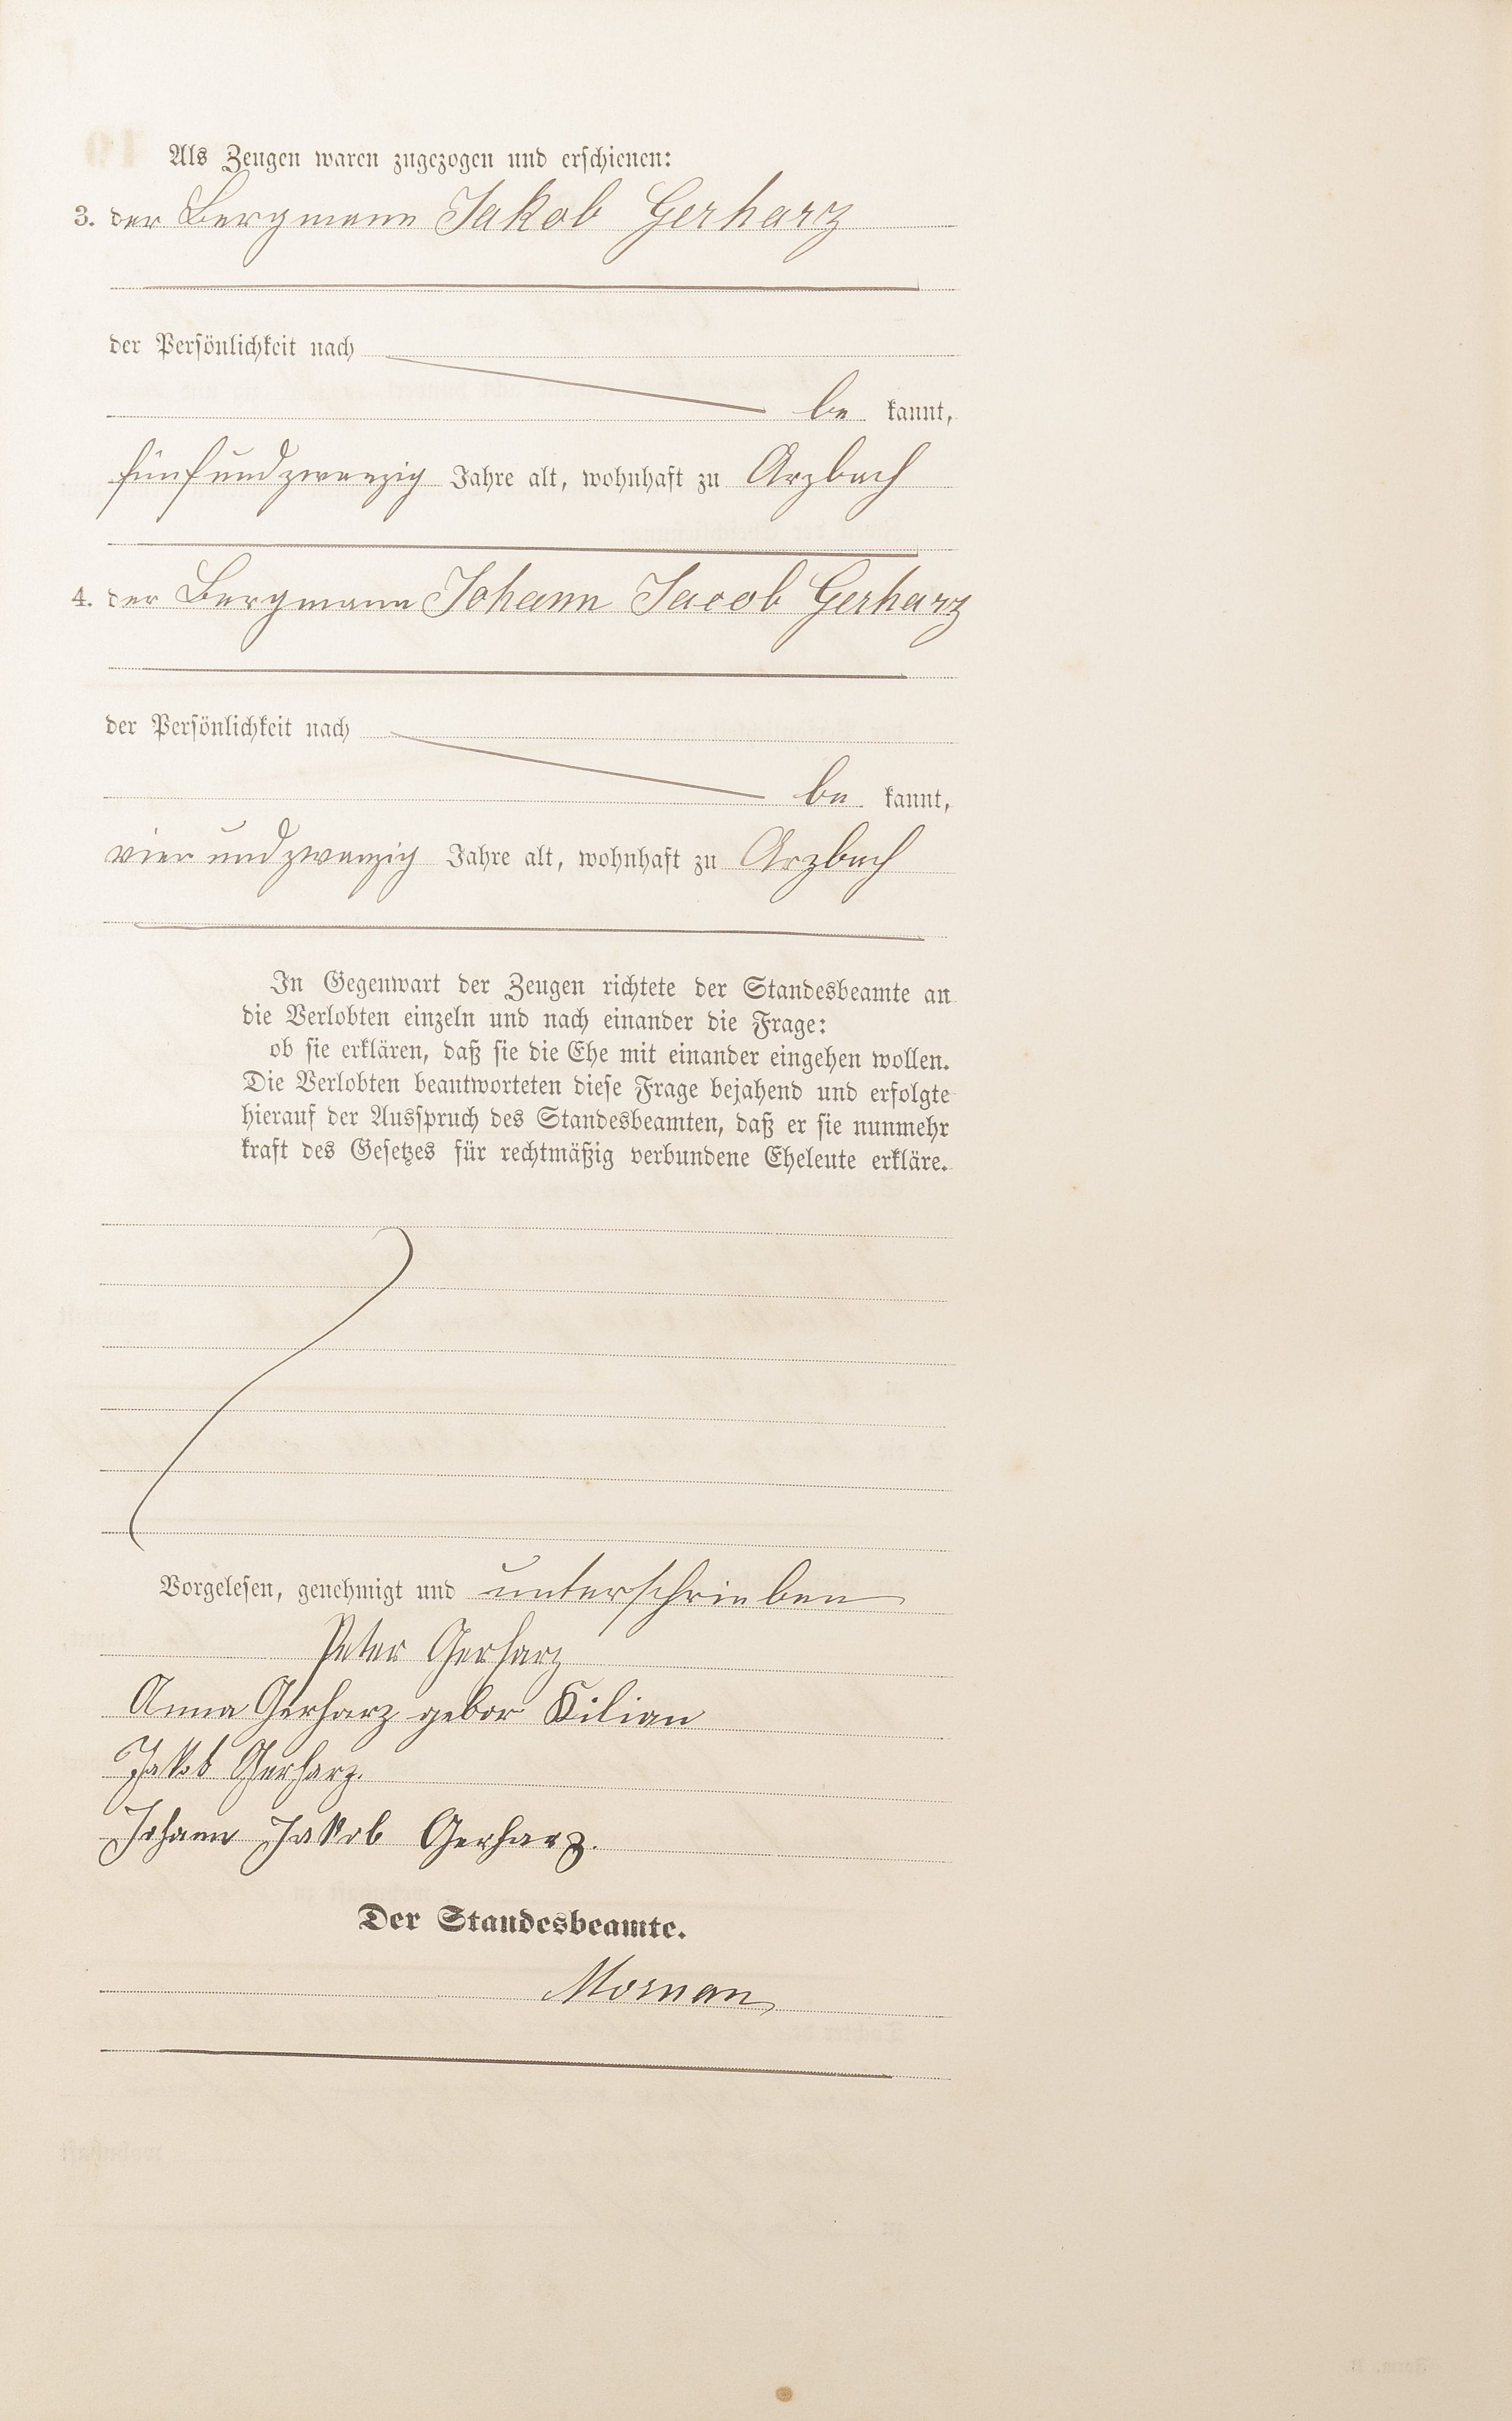 Als Zeugen waren zugezogen und erschienen:
3. der Bergmann Jakob Gerharz
der Persönlichkeit nach
be kannt,
fünfundzwanzig Jahre alt, wohnhaft zu Arzbach
4. der Bergmann Johann Jacob Gerharz
der Persönlichkeit nach
be kannt,
vierundzwanzig Jahre alt, wohnhaft zu Arzbach
In Gegenwart der Zeugen richtete der Standesbeamte an
die Verlobten einzeln und nach einander die Frage:
ob sie erklären, daß sie die Ehe mit einander eingehen wollen.
Die Verlobten beantworteten diese Frage bejahend und erfolgte
hierauf der Ausspruch des Standesbeamten, daß er sie nunmehr
kraft des Gesetzes für rechtmäßig verbundene Eheleute erkläre.
Vorgelesen, genehmigt und unterschrieben
Peter Gerharz
Anna Gerharz gebor Kilian
Jakob Gerharz.
Johann Jakob Gerharz.
Der Standesbeamte.